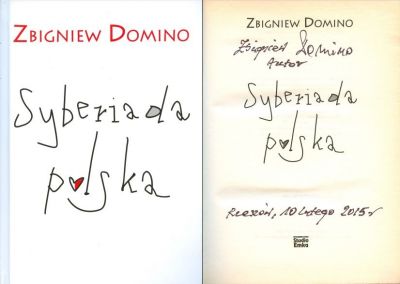 ZBIGNIEW DOMINO
Syberiada
polska
ZBIGNIEW DOMINO
Zbigniew Domino
Autor
Syberiada
polska
Rzeszów, 10 lutego 2015 r
Studio
Emka